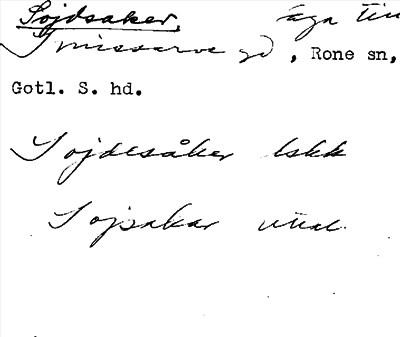 Sojdsaker, äga till
Smissarve gd, Rone sn,
Gotl. S. hd.
Sojdesåker lskk
Sojsakar utal.